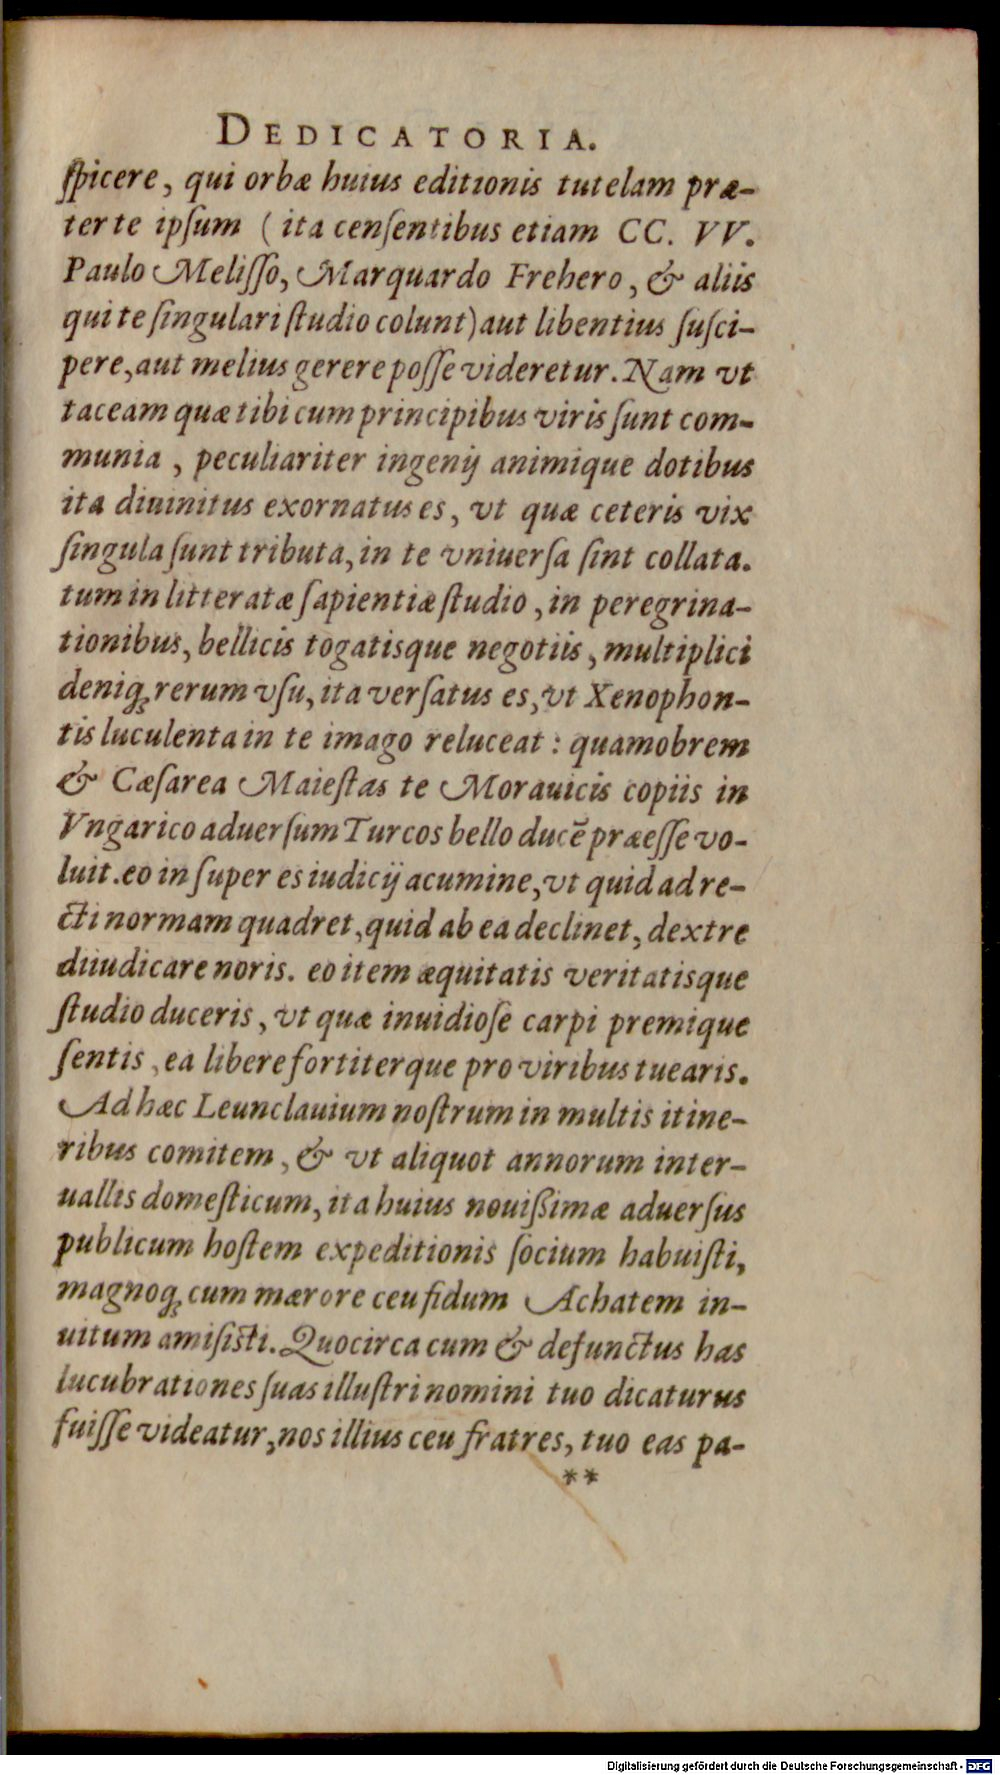 DEDICATORIA.
ſpicere, qui orbæ huius editionis tutelam præ-
ter te ipſum (ita cenſentibus etiam CC. VV.
Paulo Meliſſo, Marquardo Frehero, & aliis
qui te ſingulari ſtudio colunt) aut libentius ſuſci-
pere, aut melius gerere poſſe videretur. Nam vt
taceam quæ tibi cum principibus viris ſunt com-
munia, peculiariter ingenij animique dotibus
ita diuinitus exornatus es, vt quæ ceteris vix
ſingula ſunt tributa, in te vniuerſa ſint collata.
tum in litteratæ ſapientiæ ſtudio, in peregrina-
tionibus, bellicis togatisque negotiis, multiplici
deniqꝫ rerum vſu, ita verſatus es, vt Xenophon-
tis luculenta in te imago reluceat: quamobrem
& Cæſarea Maieſtas te Morauicis copiis in
Vngarico aduerſum Turcos bello ducē præeſſe vo-
luit. eo inſuper es iudicij acumine, vt quid ad re-
cti normam quadret, quid ab ea declinet, dextre
diiudicare noris. eo item æquitatis veritatisque
ſtudio duceris, vt quæ inuidioſe carpi premique
ſentis, ea libere fortiterque pro viribus tuearis.
Ad hæc Leunclauium noſtrum in multis itine-
ribus comitem, & vt aliquot annorum inter-
uallis domeſticum, ita huius nouißimæ aduerſus
publicum hoſtem expeditionis ſocium habuiſti,
magnoqꝫ cum mærore ceu fidum Achatem in-
uitum amiſiſti. Quocirca cum & defunctus has
lucubrationes ſuas illuſtri nomini tuo dicaturus
fuiſſe videatur, nos illius ceu fratres, tuo eas pa-
**
Digitalisierung gefördert durch die Deutsche Forschungsgemeinschaft - DFG